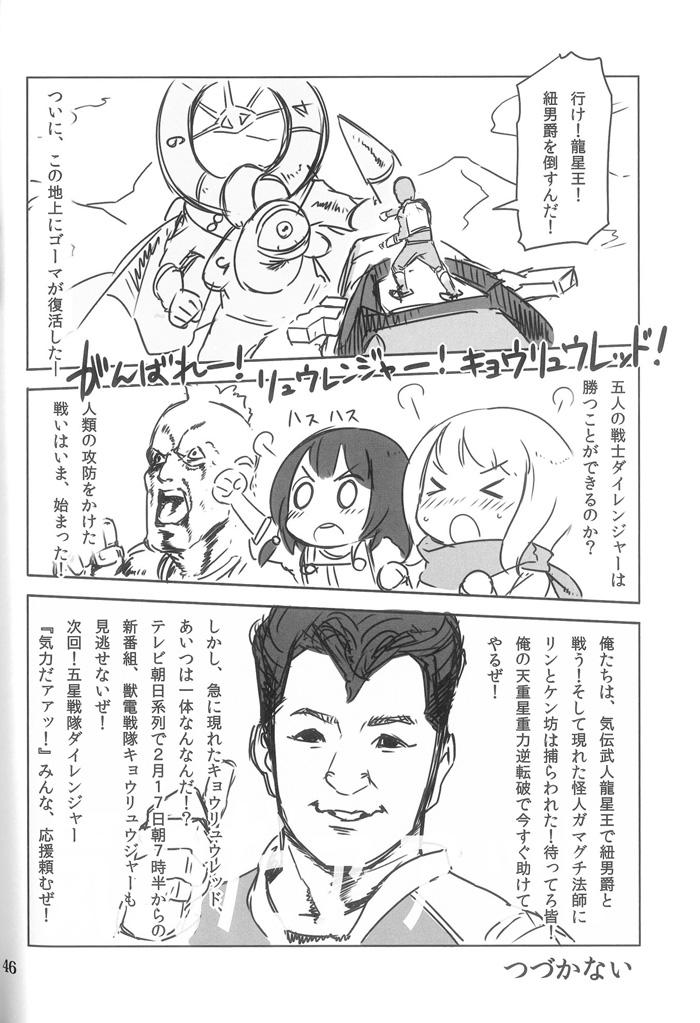 行け!龍星王!
紐男爵を倒すんだ!
ついに、この地上にゴーマが復活したー
がんばれー!
リュウレンジャー!
キョウリュウレッド!
五人の戦士ダイレンジャーは
勝つことができるのか?
ハスハス
人類の攻防をかけた
戦いはいま、始まった!
俺たちは、気伝武人龍星王で紐男爵と
戦う!そして現れた怪人ガマグチ法師に
リンとケン坊は捕らわれた!待ってろ皆!
俺の天重星重力逆転破で今すぐ助けて
やるぜ!
しかし、急に現れたキョウリュウレッド、
あいつは一体なんなんだ!?
テレビ朝日系列で2月17日朝7時半からの
新番組、獣電戦隊キョウリュウジャーも
見逃せないぜ!
次回!五星戦隊ダイレンジャー
『気力だアァッ!』みんな、応援頼むぜ!
つづかない
46